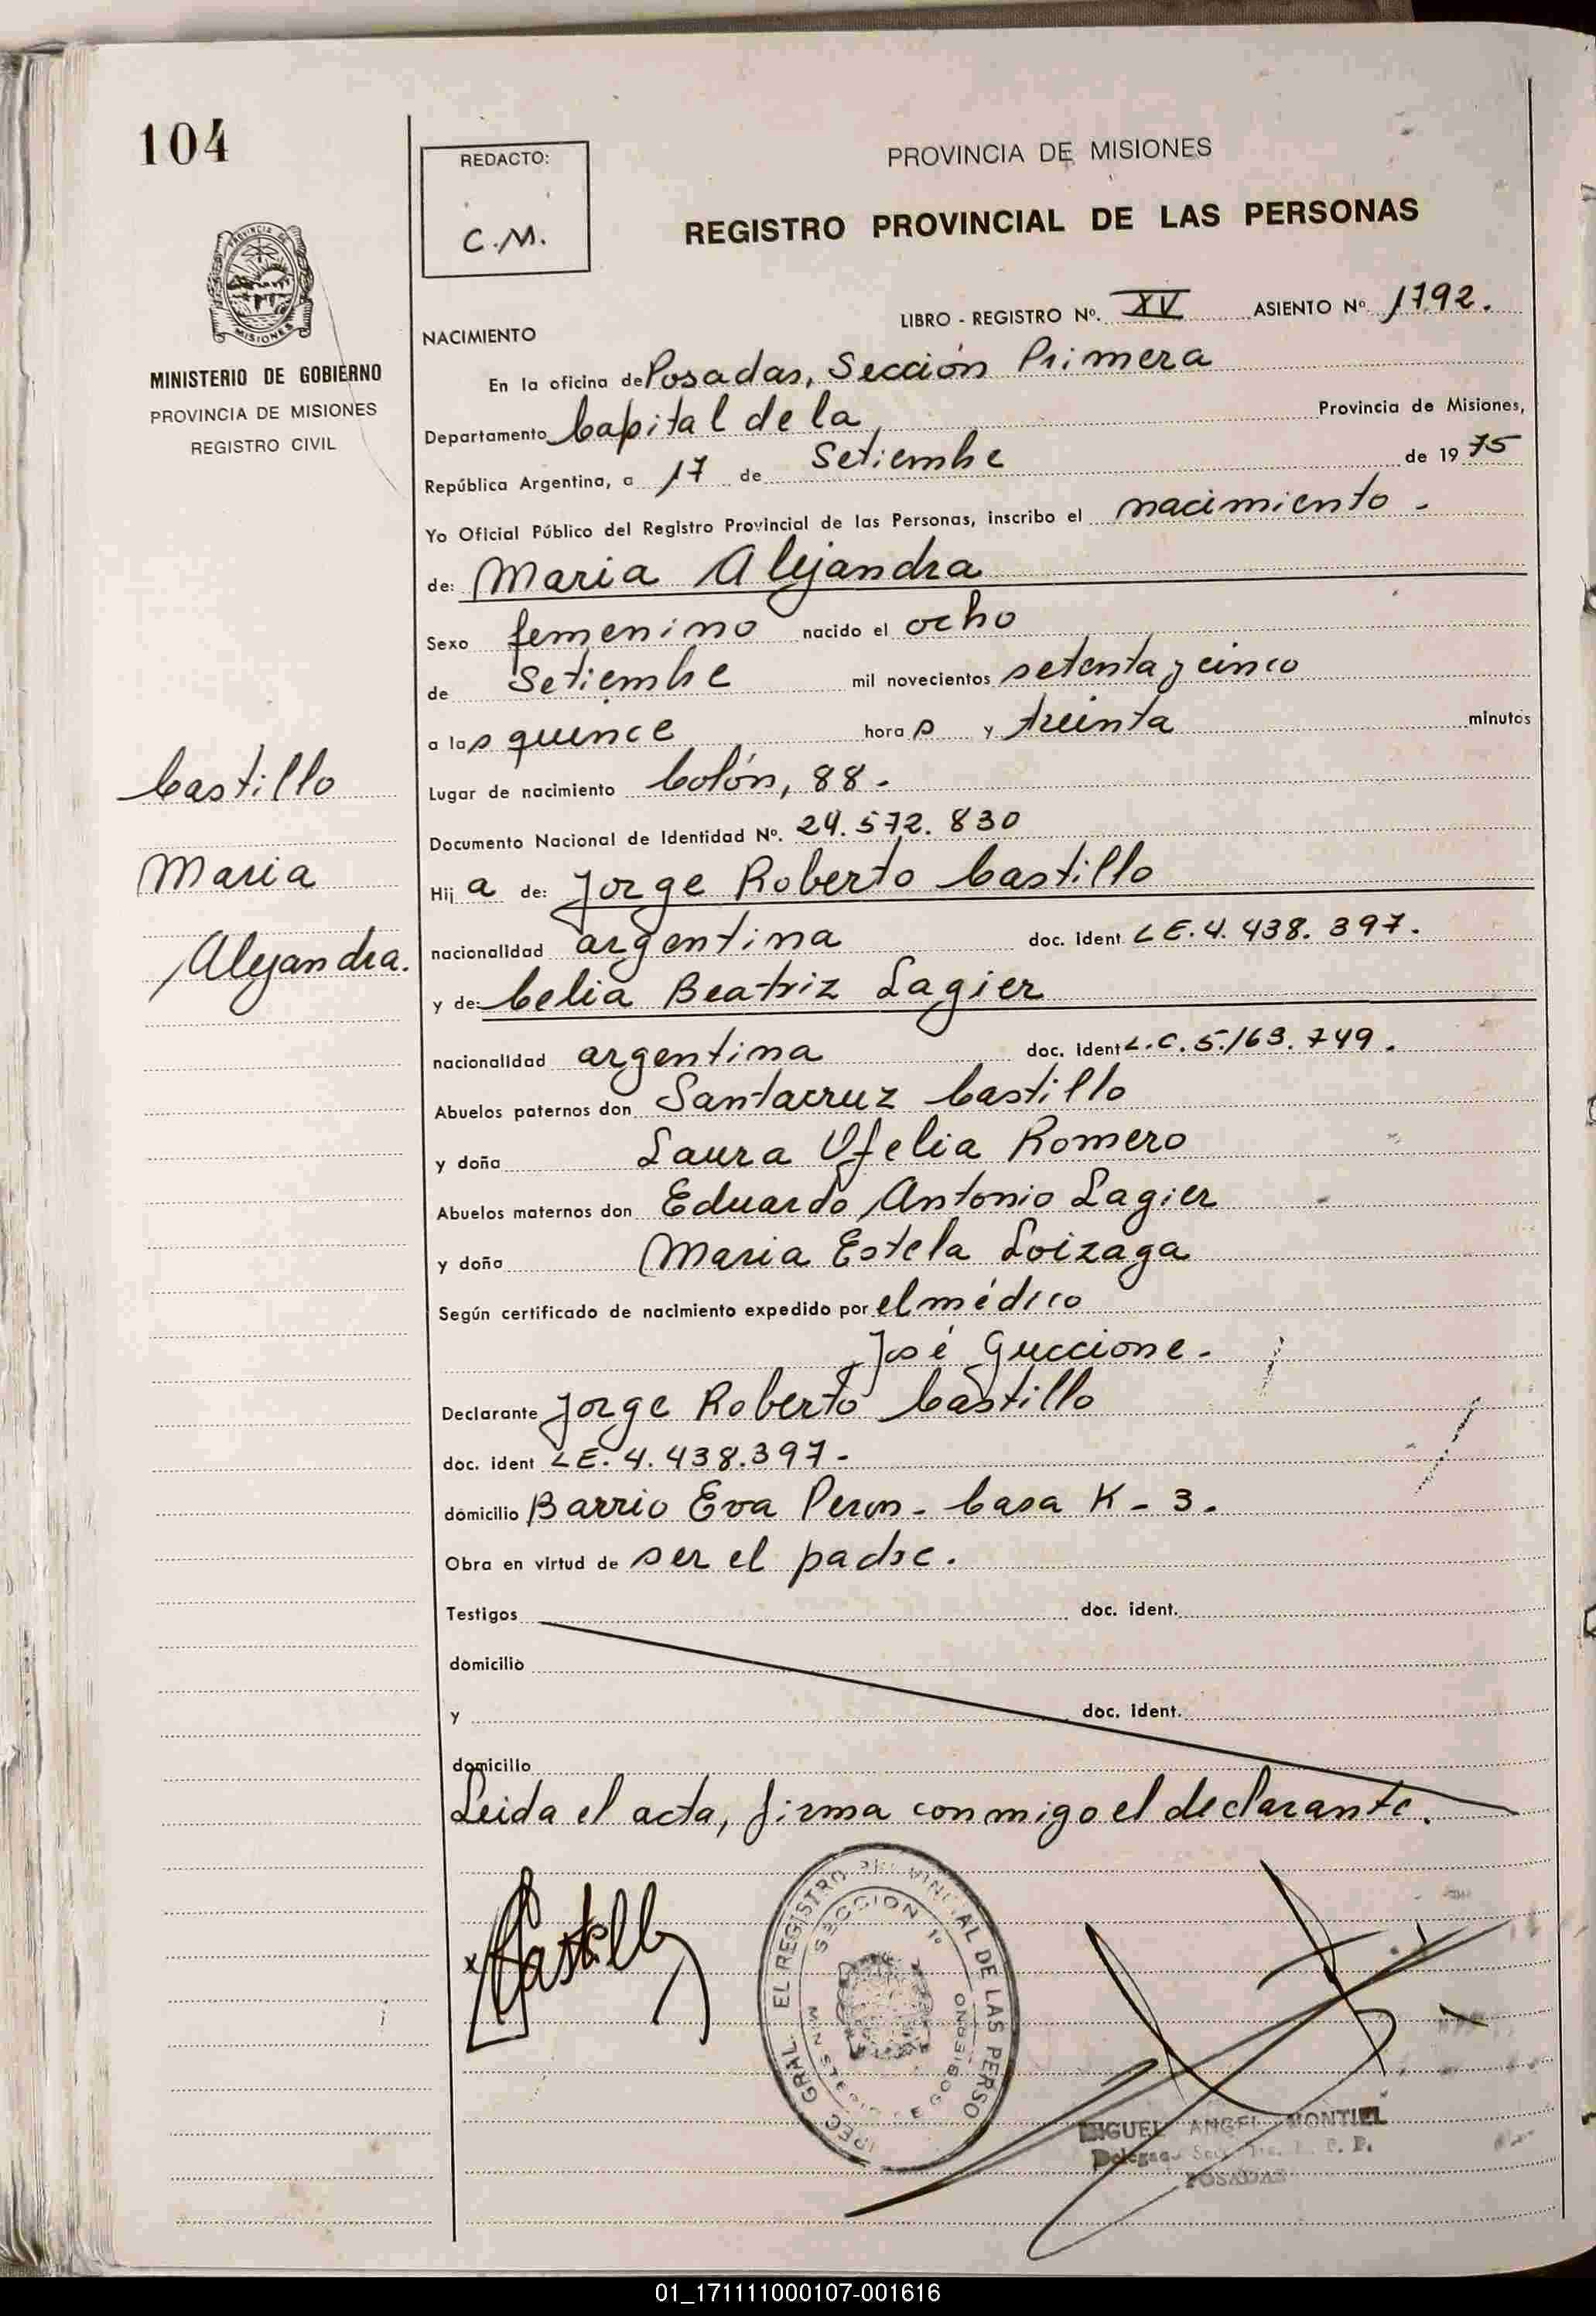 104
REDACTO:
C.M.
PROVINCIA DE MISIONES
REGISTRO PROVINCIAL DE LAS PERSONAS
PROVINCIA DE
MISIONES
MINISTERIO DE GOBIERNO
PROVINCIA DE MISIONES
REGISTRO CIVIL
LIBRO - REGISTRO Nº. XV ASIENTO Nº 1792.
NACIMIENTO
En la oficina de Posadas, Sección Primera
Departamento Capital de la Provincia de Misiones,
República Argentina, a 17 de Setiembre de 1975
Yo Oficial Público del Registro Provincial de las Personas, inscribo el nacimiento.
de: Maria Alejandra
Sexo femenino nacido el ocho
de Setiembre mil novecientos setenta y cinco
a las quince horas y treinta minutos
Lugar de nacimiento Colón, 88.
Documento Nacional de Identidad Nº. 24.572.830
Hija de: Jorge Roberto Castillo
nacionalidad argentina doc. ident LE.4.438.397.
y de: Celia Beatriz Lagier
nacionalidad argentina doc. ident L.C.5.163.749.
Abuelos paternos don Santacruz Castillo
y doña Laura Ofelia Romero
Abuelos maternos don Eduardo Antonio Lagier
y doña Maria Estela Loizaga
Según certificado de nacimiento expedido por el médico
José Guccione.
Declarante Jorge Roberto Castillo
doc. ident LE.4.438.397.
domicilio Barrio Eva Peron - Casa K - 3.
Obra en virtud de ser el padre.
Testigos doc. ident.
domicilio
y doc. ident.
domicilio
Leida el acta, firma conmigo el declarante.
Castillo
Maria
Alejandra.
x Castillo
GRAL. EL REGISTRO PROVINCIAL DE LAS PERSO
SECCION 1º
MINISTERIO DE GOBIERNO
MIGUEL ANGEL MONTIEL
POSADAS
01_171111000107-001616